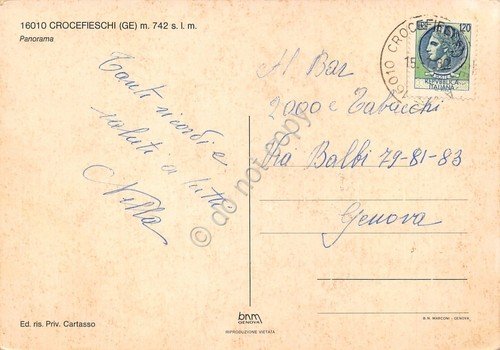 16010 CROCEFIESCHI (GE) m. 742 s. l. m.
Panorama
Tanti ricordi e
saluti a tutti
Nilla
120
REPUBBLICA
ITALIANA
16010 CROCEFIESCHI
Al Bar
2000 e Tabacchi
Via Balbi 79-81-83
Genova
© do not copy
Ed. ris. Priv. Cartasso
bnm
GENOVA
RIPRODUZIONE VIETATA
B.N. MARCONI - GENOVA